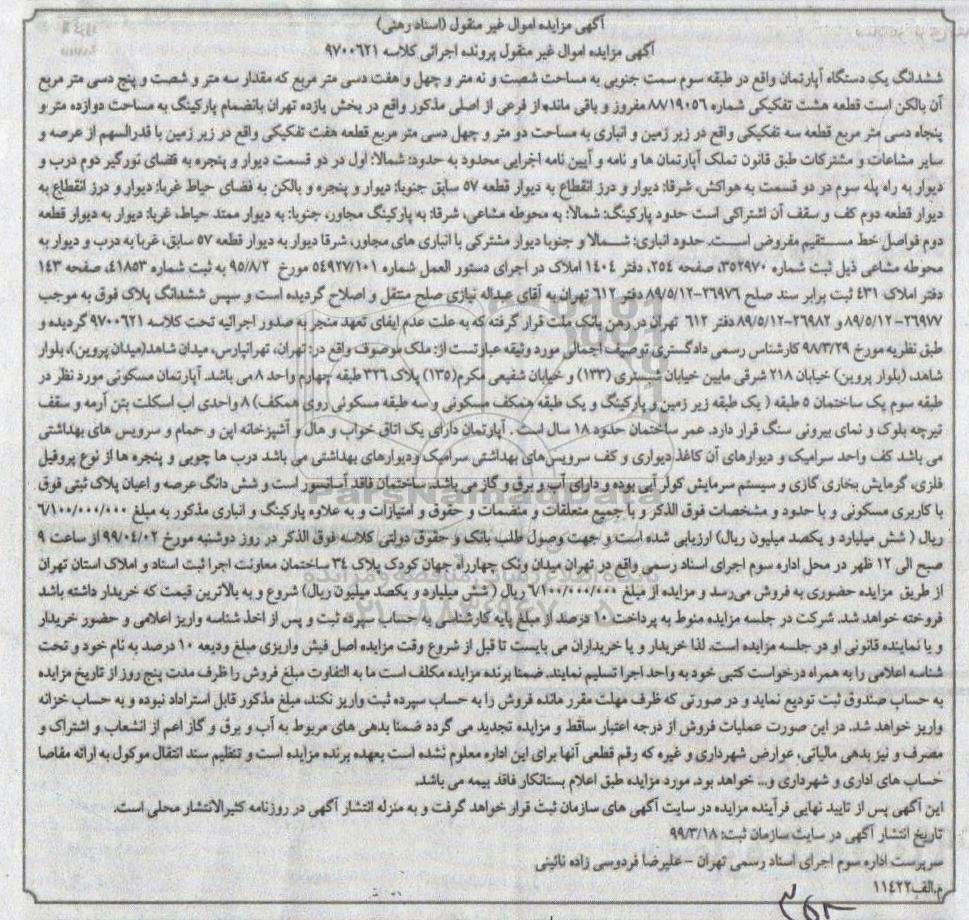 آگهی مزایده اموال غیر منقول (اسناد رهنی)
آگهی مزایده اموال غیر منقول پرونده اجرائی کلاسه ۹۷۰۰۶۲۱
ششدانگ یک دستگاه آپارتمان واقع در طبقه سوم سمت جنوبی به مساحت شصت و نه متر و چهل و هفت دسی متر مربع که مقدار سه متر و شصت و پنج دسی متر مربع
آن بالکن است قطعه هشت تفکیکی شماره ۸۸۱۹۰۵۶ مفروز و باقی مانده از فرعی از اصلی مذکور واقع در بخش یازده تهران بانضمام پارکینگ به مساحت دوازده متر و
پنجاه دسی متر مربع قطعه سه تفکیکی واقع در زیر زمین و انباری به مساحت دو متر و چهل دسی متر مربع قطعه هفت تفکیکی واقع در زیر زمین با قدرالسهم از عرصه و
سایر مشاعات و مشترکات طبق قانون تملک آپارتمان ها و نامه و آیین نامه اجرایی محدود به حدود: شمالا: اول در دو قسمت دیوار و پنجره به فضای نورگیر دوم درب و
دیوار به راه پله سوم در دو قسمت به هواکش، شرقا: دیوار و درز انقطاع به دیوار قطعه ۵۷ سابق جنوبا: دیوار و پنجره و بالکن به فضای حیاط غربا: دیوار و درز انقطاع به
دیوار قطعه دوم کف و سقف آن اشتراکی است حدود پارکینگ: شمالا: به محوطه مشاعی، شرقا: به پارکینگ مجاور، جنوبا: به دیوار ممتد حیاط، غربا: دیوار به دیوار قطعه
دوم فواصل خط مستقیم مفروض است. حدود انباری: شمالا و جنوبا دیوار مشترکی با انباری های مجاور، شرقا دیوار به دیوار قطعه ۵۷ سابق، غربا به درب و دیوار به
محوطه مشاعی ذیل ثبت شماره ۳۵۲۹۷۰، صفحه ۲۵۴، دفتر ۱۴۰۴ املاک در اجرای دستور العمل شماره ۵۴۹۲۷/۱۰۱ مورخ ۹۵/۸/۲ به ثبت شماره ۴۱۸۵۳، صفحه ۱۴۳
دفتر املاک ۴۳۱ ثبت برابر سند صلح ۲۶۹۷۶-۸۹/۵/۱۲ دفتر ۶۱۲ تهران به آقای عبداله نیازی صلح منتقل و اصلاح گردیده است و سپس ششدانگ پلاک فوق به موجب
۲۶۹۷۷-۸۹/۵/۱۲ و ۲۶۹۸۲-۸۹/۵/۱۲ دفتر ۶۱۲ تهران در رهن بانک ملت قرار گرفته که به علت عدم ایفای تعهد منجر به صدور اجرائیه تحت کلاسه ۹۷۰۰۶۲۱ گردیده و
طبق نظریه مورخ ۹۸/۳/۲۹ کارشناس رسمی دادگستری توصیف اجمالی مورد وثیقه عبارتست از: ملک موصوف واقع در: تهران، تهرانپارس، میدان شاهد(میدان پروین)، بلوار
شاهد، (بلوار پروین) خیابان ۲۱۸ شرقی مابین خیابان تستری (۱۳۳) و خیابان شفیعی مکرم(۱۳۵) پلاک ۳۲۶ طبقه چهارم واحد ۸ می باشد. آپارتمان مسکونی مورد نظر در
طبقه سوم یک ساختمان ۵ طبقه ( یک طبقه زیر زمین و پارکینگ و یک طبقه همکف مسکونی و سه طبقه مسکونی روی همکف) ۸ واحدی اب اسکلت بتن آرمه و سقف
تیرچه بلوک و نمای بیرونی سنگ قرار دارد. عمر ساختمان حدود ۱۸ سال است . آپارتمان دارای یک اتاق خواب و هال و آشپزخانه اپن و حمام و سرویس های بهداشتی
می باشد کف واحد سرامیک و دیوارهای آن کاغذ دیواری و کف سرویس‌های بهداشتی سرامیک و دیوارهای بهداشتی می باشد درب ها چوبی و پنجره ها از نوع پروفیل
فلزی، گرمایش بخاری گازی و سیستم سرمایش کولر آبی بوده و دارای آب و برق و گاز می باشد. ساختمان فاقد آسانسور است و شش دانگ عرصه و اعیان پلاک ثبتی فوق
با کاربری مسکونی و با حدود و مشخصات فوق الذکر و با جمیع متعلقات و منضمات و حقوق و امتیازات و به علاوه پارکینگ و انباری مذکور به مبلغ ۶/۱۰۰/۰۰۰/۰۰۰
ریال ( شش میلیارد و یکصد میلیون ریال) ارزیابی شده است و جهت وصول طلب بانک و حقوق دولتی کلاسه فوق الذکر در روز دوشنبه مورخ ۹۹/۰۴/۰۲ از ساعت ۹
صبح الی ۱۲ ظهر در محل اداره سوم اجرای اسناد رسمی واقع در تهران میدان ونک چهارراه جهان کودک پلاک ۳۴ ساختمان معاونت اجرا ثبت اسناد و املاک استان تهران
از طریق مزایده حضوری به فروش می‌رسد و مزایده از مبلغ ۶/۱۰۰/۰۰۰/۰۰۰ ریال ( شش میلیارد و یکصد میلیون ریال) شروع و به بالاترین قیمت که خریدار داشته باشد
فروخته خواهد شد. شرکت در جلسه مزایده منوط به پرداخت ۱۰ درصد از مبلغ پایه کارشناسی به حساب سپرده ثبت و پس از اخذ شناسه واریز اعلامی و حضور خریدار
و یا نماینده قانونی او در جلسه مزایده است. لذا خریدار و یا خریداران می بایست تا قبل از شروع وقت مزایده اصل فیش واریزی مبلغ ودیعه ۱۰ درصد به نام خود و تحت
شناسه اعلامی را به همراه درخواست کتبی خود به واحد اجرا تسلیم نمایند. ضمنا برنده مزایده مکلف است ما به التفاوت مبلغ فروش را ظرف مدت پنج روز از تاریخ مزایده
به حساب صندوق ثبت تودیع نماید و در صورتی که ظرف مهلت مقرر مانده فروش را به حساب سپرده ثبت واریز نکند، مبلغ مذکور قابل استرداد نبوده و به حساب خزانه
واریز خواهد شد. در این صورت عملیات فروش از درجه اعتبار ساقط و مزایده تجدید می گردد ضمنا بدهی های مربوط به آب و برق و گاز اعم از انشعاب و اشتراک و
مصرف و نیز بدهی مالیاتی، عوارض شهرداری و غیره که رقم قطعی آنها برای این اداره معلوم نشده است بعهده برنده مزایده است و تنظیم سند انتقال موکول به ارائه مفاصا
حساب های اداری و شهرداری و... خواهد بود. مورد مزایده طبق اعلام بستانکار فاقد بیمه می باشد.
این آگهی پس از تایید نهایی فرآینده مزایده در سایت آگهی های سازمان ثبت قرار خواهد گرفت و به منزله انتشار آگهی در روزنامه کثیرالانتشار محلی است.
تاریخ انتشار آگهی در سایت سازمان ثبت: ۹۹/۳/۱۸
سرپرست اداره سوم اجرای اسناد رسمی تهران - علیرضا فردوسی زاده نائینی
م.الف۱۱۴۲۲
ParsNamadData